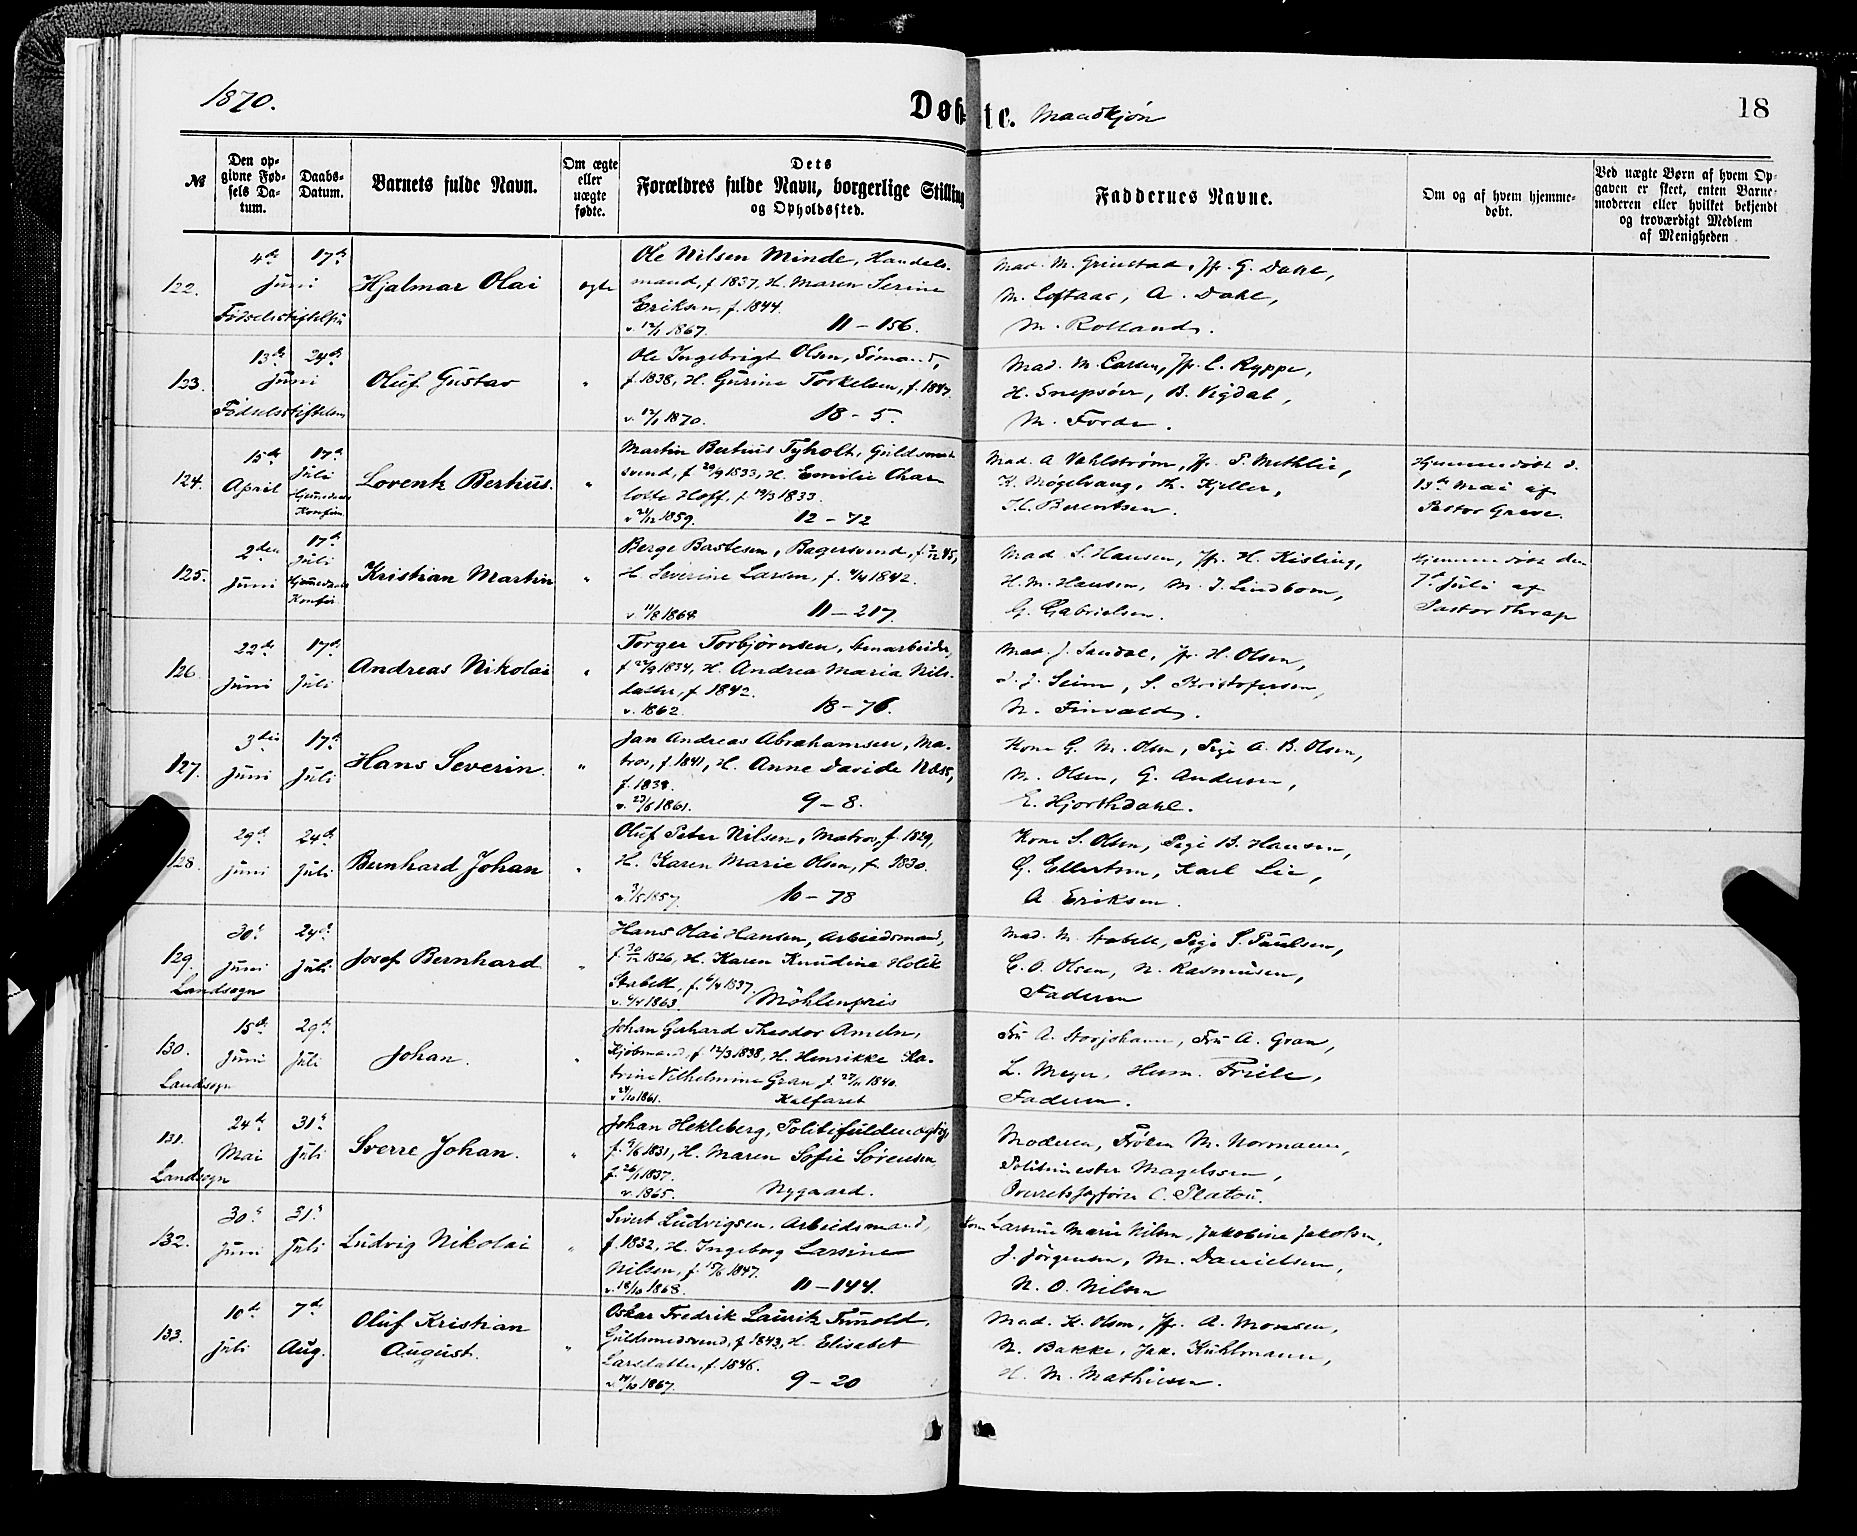 1870.
Døbte. Mandkjøn
18
№
Den opgivne Fødsels Datum.
Daabs-Datum.
Barnets fulde Navn.
Om ægte eller uægte fødte.
Dets Forældres fulde Navn, borgerlige Stilling og Opholdssted.
Faddernes Navne.
Om og af hvem hjemmedøbt.
Ved uægte Børn af hvem Opgaven er skeet, enten Barnemoderen eller hvilket bekjendt og troværdigt Medlem af Menigheden
122.
4de Juni
17de
Fødselsstiftelsen
Hjalmar Olai
ægte
Ole Nilsen Minde, Handels-
mand, f 1837, H. Maren Serine
Eriksen, f. 1844.
v. 12/1 1867. 11 – 156.
Mad. M. Grimstad, Jfr. G. Dahl,
M. Loftaas, A. Dahl,
M. Rolland.
123.
13de Juni
24de
Fødselsstiftelsen
Oluf Gustav
"
Ole Ingebrigt Olsen, Sømand,
f. 1838, H. Gurine Torkelsen, f. 1847
v. 12/1 1870. 18 – 5.
Mad. M. Larsen, Jfr. L. Ryppe,
H. Snepsøer, B. Vigdal,
M. Forde.
124.
15de April
17de Juli
Lorentz Bertius.
"
Martin Bertius Tyholt, Guldsmed-
svend, f 20/9 1833, H. Emilie Char
lotte Hoff, f. 14/3 1833.
v 21/12 1859. 12 – 72
Mad. A Vahlstrøm, Jfr. S. Methlie,
K. Møgelvang, A. Kjeller,
T. C. Berentsen.
Hjemmedøbt d.
13de Mai af
Pastor Greve.
125.
2den Juni
17de Juli
Kristian Martin
"
Berge Bastesen, Bagersvend,
H. Severine Larsen, f. 4/4 1842.
v 11/8 1864 11 – 217.
Mad S. Hansen, Jfr. H. Kisling,
H. M. Hansen, M. J. Lindbom,
G. Gabrielsen.
Hjemmedøbt den
7de Juli af
Pastor Thrap
126.
22de Juni
17de Juli
Andreas Nikolai
"
Torger Torbjørnsen, Stenarbeider,
f 27/9 1834, H. Andrea Maria Nils-
datter, f. 1842.
v. 1862. 18 – 76.
Mad. J. Sandal, Jfr. H. Olsen,
J. J. Seim, S. Kristofersen,
N. Finvald.
127.
3die Juni
17de Juli
Hans Severin.
"
Jan Andreas Abrahamsen, Ma-
tros, f. 1841, H. Anne Davide Næss,
f. 1838.
v. 23/6 1861. 9 – 8.
Kone G. M. Olsen, Pige A. B. Olsen,
M. Olsen, G. Andersen,
E. Hjorthdahl.
128.
29de Juni
24de Juli
Bernhard Johan
"
Oluf Peter Nilsen, Matros, f. 1829,
H. Karen Marie Olsen, f. 1830.
v. 3/5 1857. 10 – 78
Kone S. Olsen, Pige B. Hansen,
G. Ellertsen, Karl Lie,
A. Eriksen.
129.
30te Juni
24de Juli
Landsogn
Josef Bernhard
"
Hans Olai Hansen, Arbeidsmand,
1826, H. Karen Knudine Holck
Stabell, f. 6/4 1837.
v. 4/4 1863. Møhlenpris
Mad. M. Stabell, Pige S. Paulsen,
E. O. Olsen, N. Rasmusen,
Faderen
130.
15de Juni
29de Juli
Landsogn
Johan.
"
Johan Gerhard Theodor Ameln,
Kjøbmand, f 12/3 1838, H. Henrikke Ka-
trine Vilhelmine Gran f. 27/11 1840.
v 24/10 1861. Kalfaret
Fru A. Storjohann, Fru A. Gran,
L. Meyer, Herm. Friele,
Faderen.
131.
24de Mai
31te Juli
Landsogn
Sverre Johan.
"
Johan Hekleberg, Politifuldmægtig,
f. 9/6 1831, H. Maren Sofie Sørensen
f. 26/1 1837.
v. 1865. Nygaard.
Moderen, Frøken M. Normann,
Politimester Magelssen,
Overretssagfører C. Platou.
132.
30te Juni
31te Juli
Ludvig Nikolai
"
Sivert Ludvigsen, Arbeidsmand,
f. 1832, H. Ingeborg Larsine
Nilsen, f. 15/6 1847.
v. 18/10 1868. 11 – 144.
Kone Larsine Marie Nilsen, Jakobine Jakobsen,
J. Jørgensen, M. Danielsen,
N. O. Nilsen
133.
10de Juli
7de Aug.
Oluf Kristian
August.
"
Oskar Fredrik Lauritz Tunold,
Guldsmedsvend, f 1843, H. Elisabet
Larsdatter, f. 1846.
v. 14/10 1867. 9 – 20
Mad. K. Olsen, Jfr. A. Monsen,
N. Bakke, Jak. Kuhlmann,
H. M. Mathiesen.